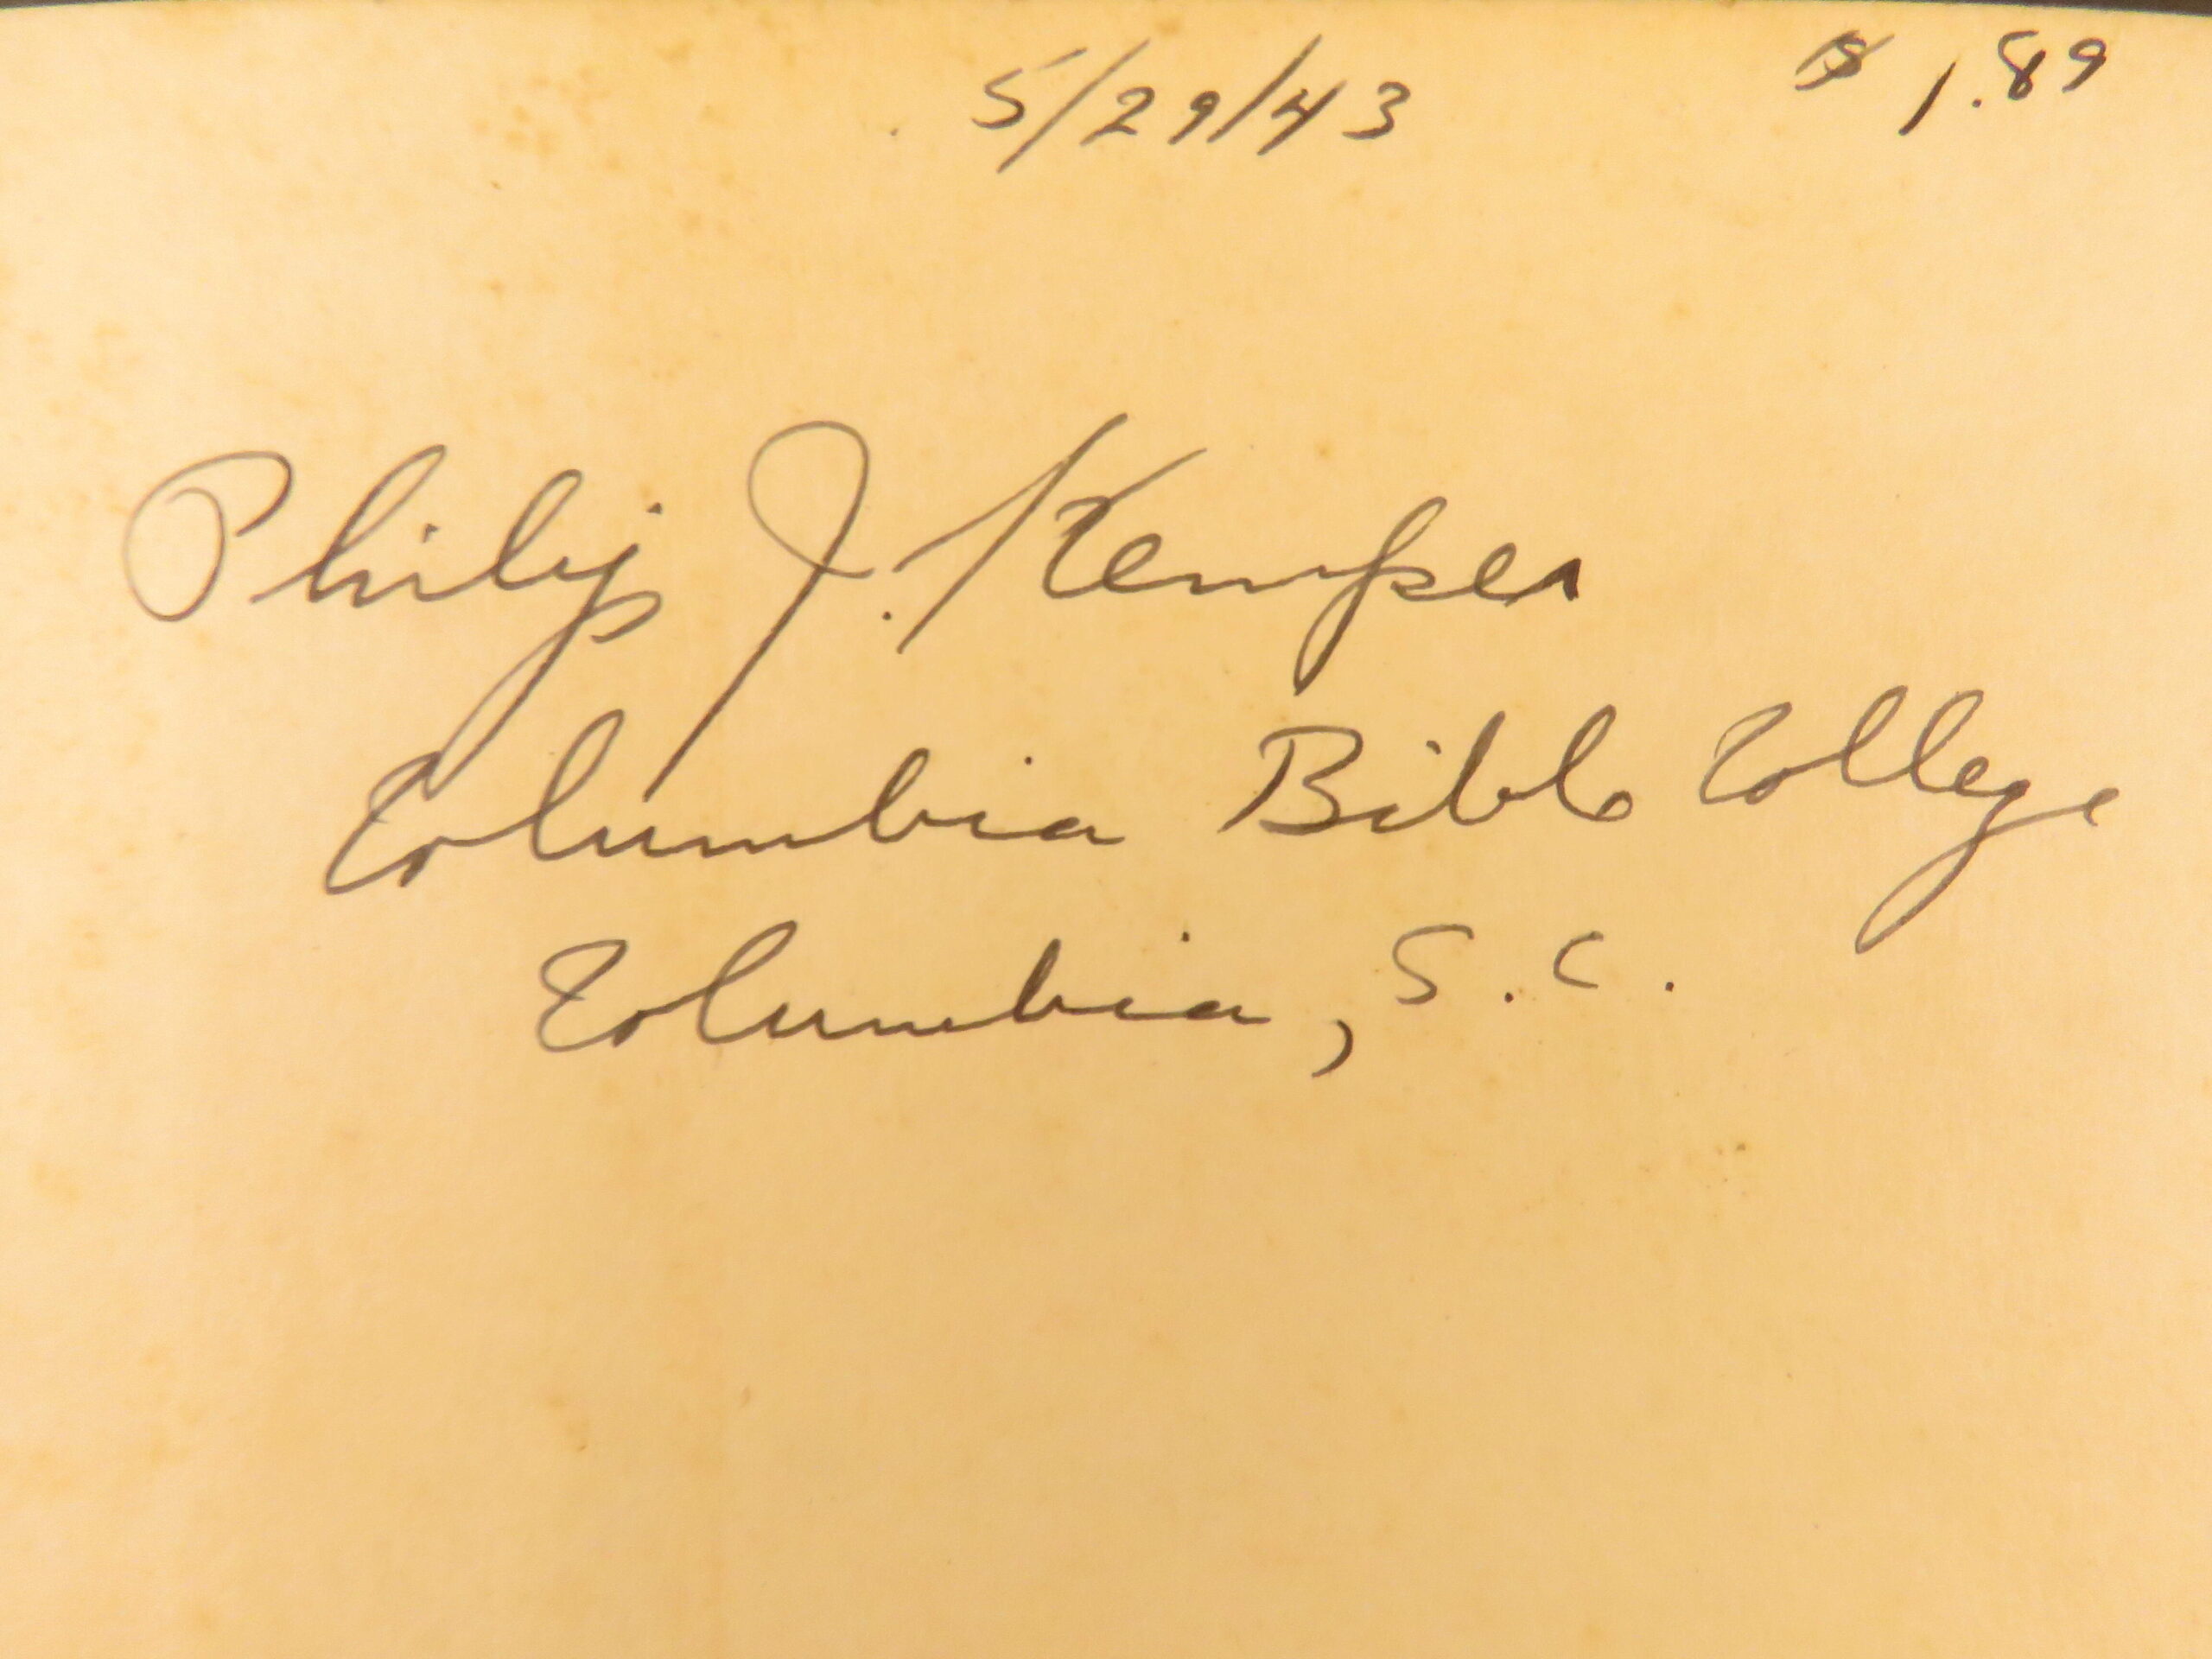 5/29/43 $ 1.89
Philip J. Kemper
Columbia Bible College
Columbia, S.C.